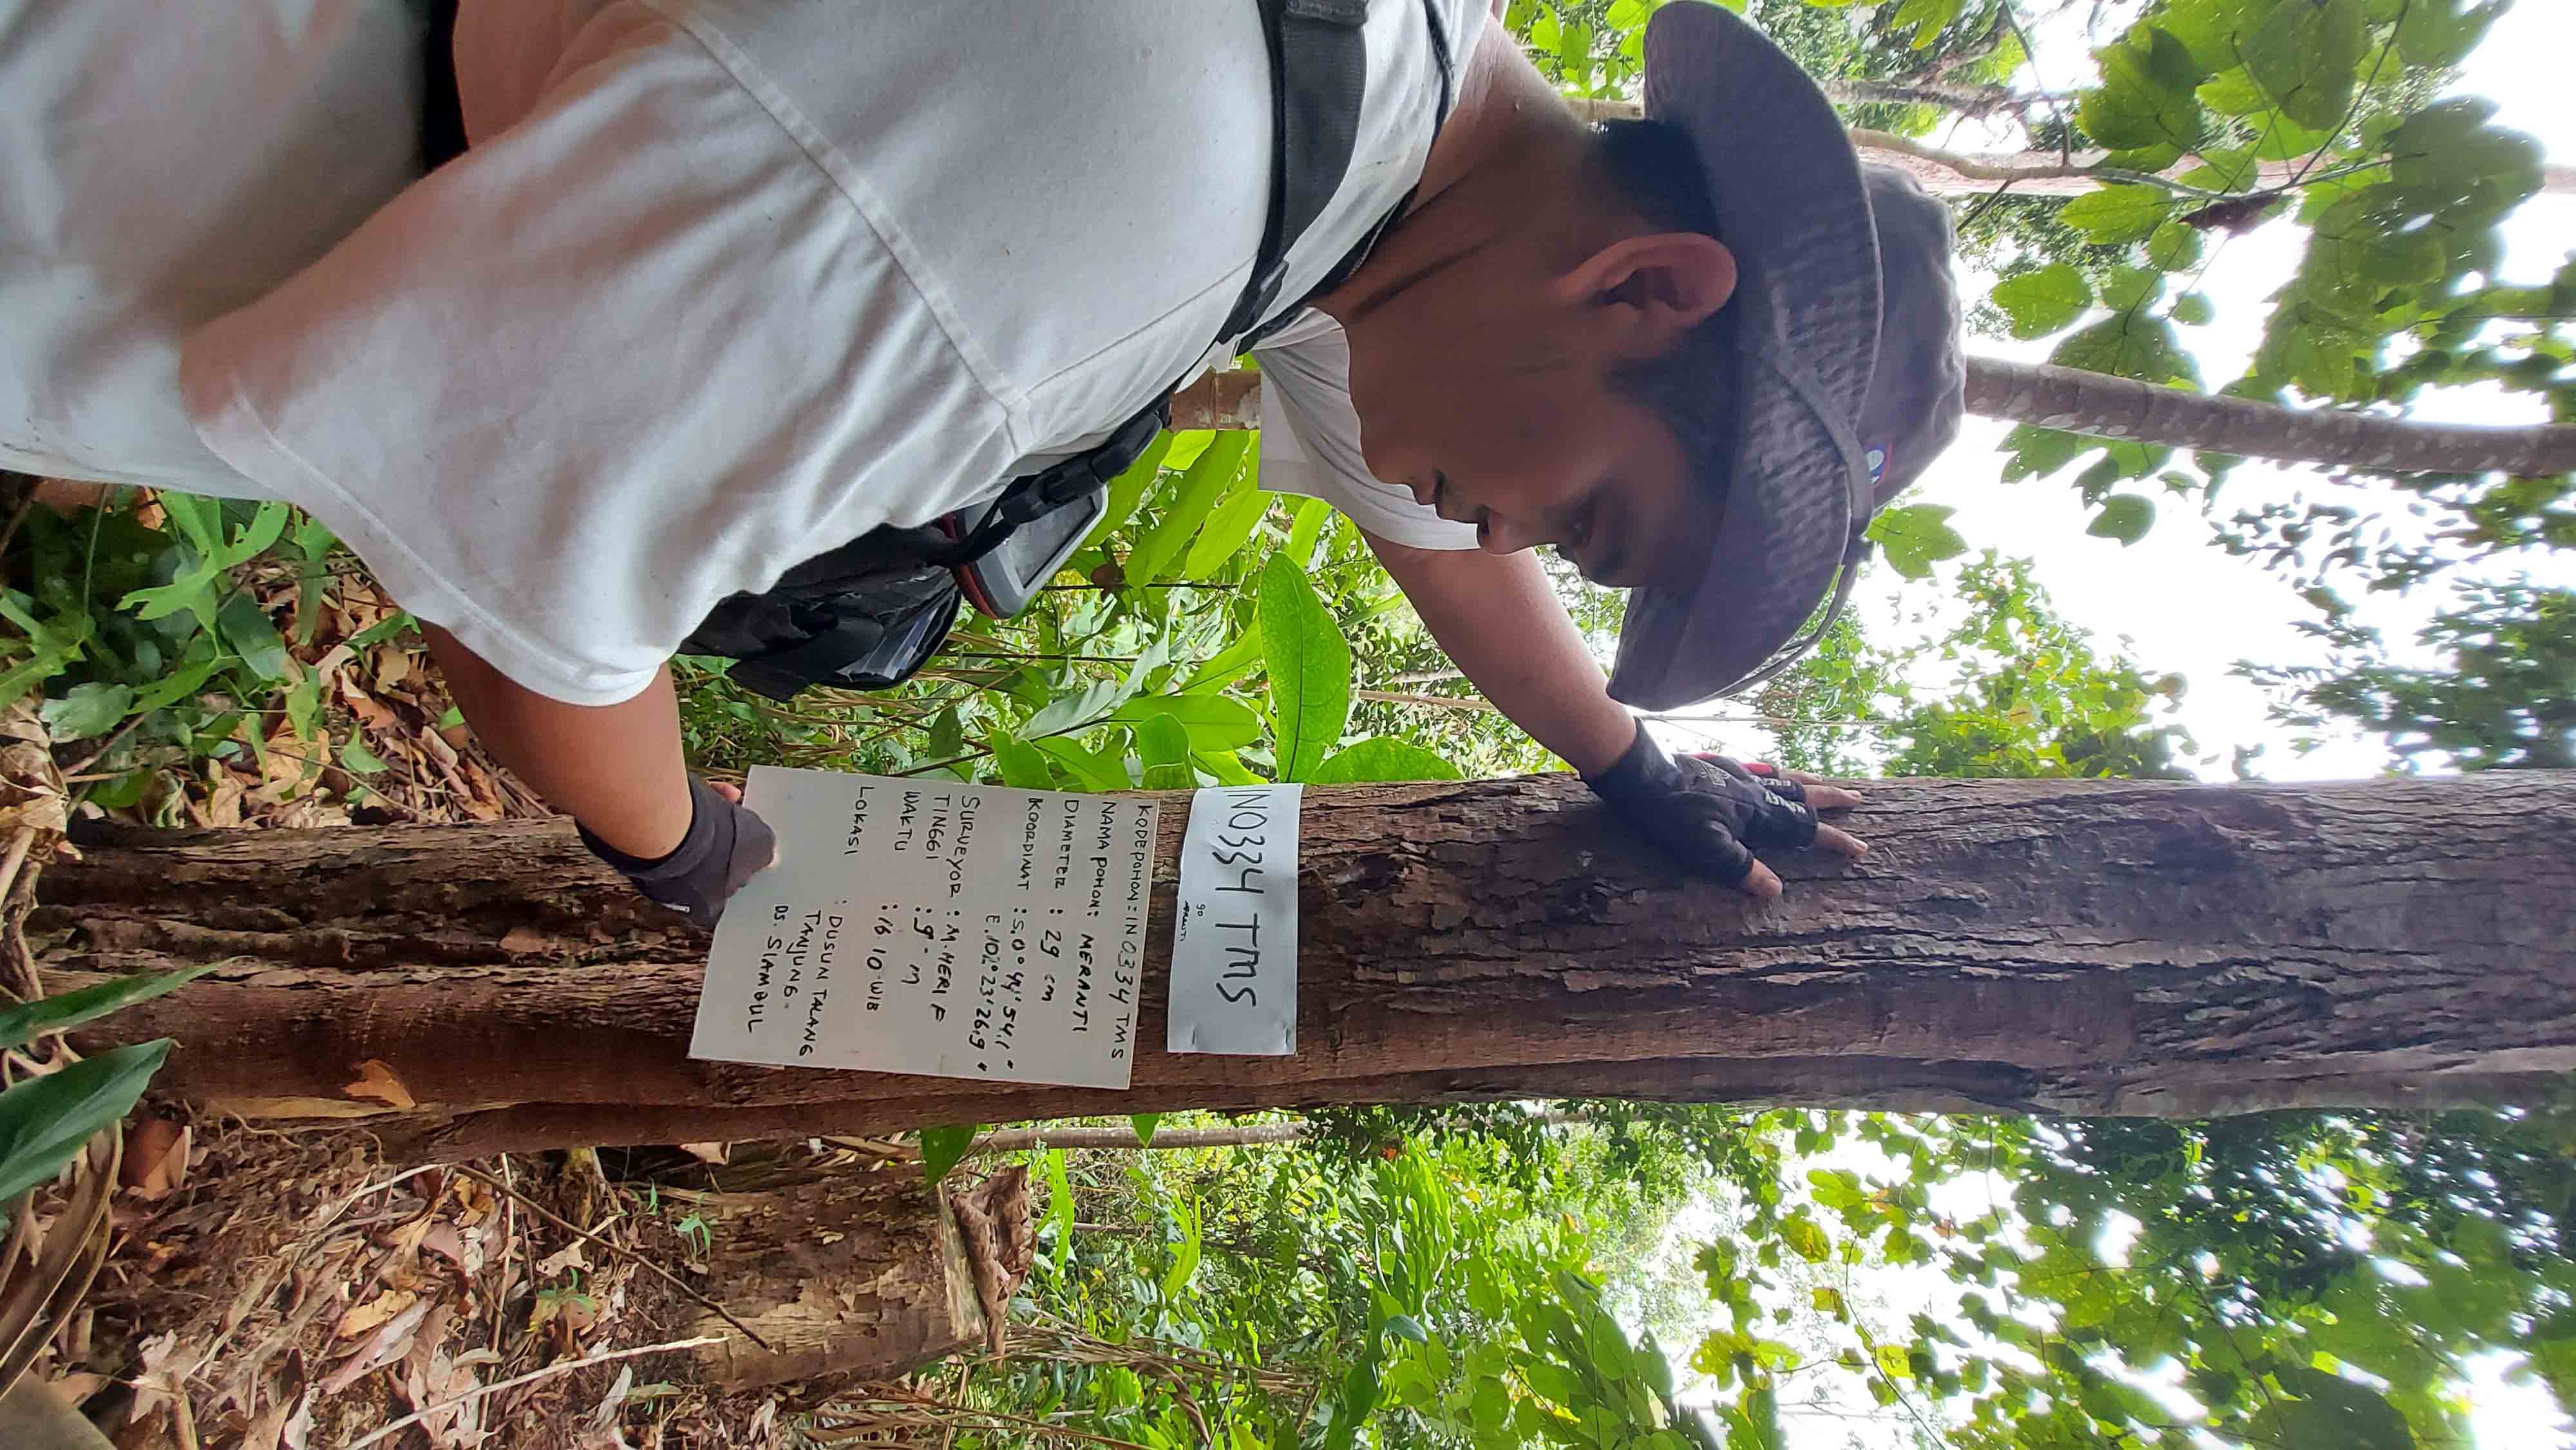 INO334 TMS
90
MRANTI
KODE POHON : INO334 TMS
NAMA POHON : MERANTI
DIAMETER : 29 cm
KOORDINAT : S.0°44'54,1"
E.102°23'26,9"
SURVEYOR : M.HERI F
TINGGI : 9 - M
WAKTU : 16 10 WIB
LOKASI : DUSUN TALANG
TANJUNG -
DS. SIAMBUL